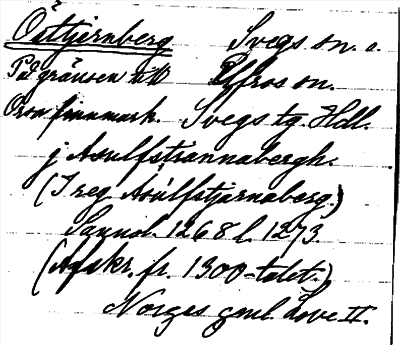 Östtjernberg Svegs sn. o.
På gränsen till Elfros sn.
Orsa finnmark. Svegs tg. Hdl.
j Asulfstiannabergh.
(I reg. Asúlfstjarnaberg.)
Sannol. 1268 l. 1273.
(Afskr. fr. 1300-talet.)
Norges gml. Love II.